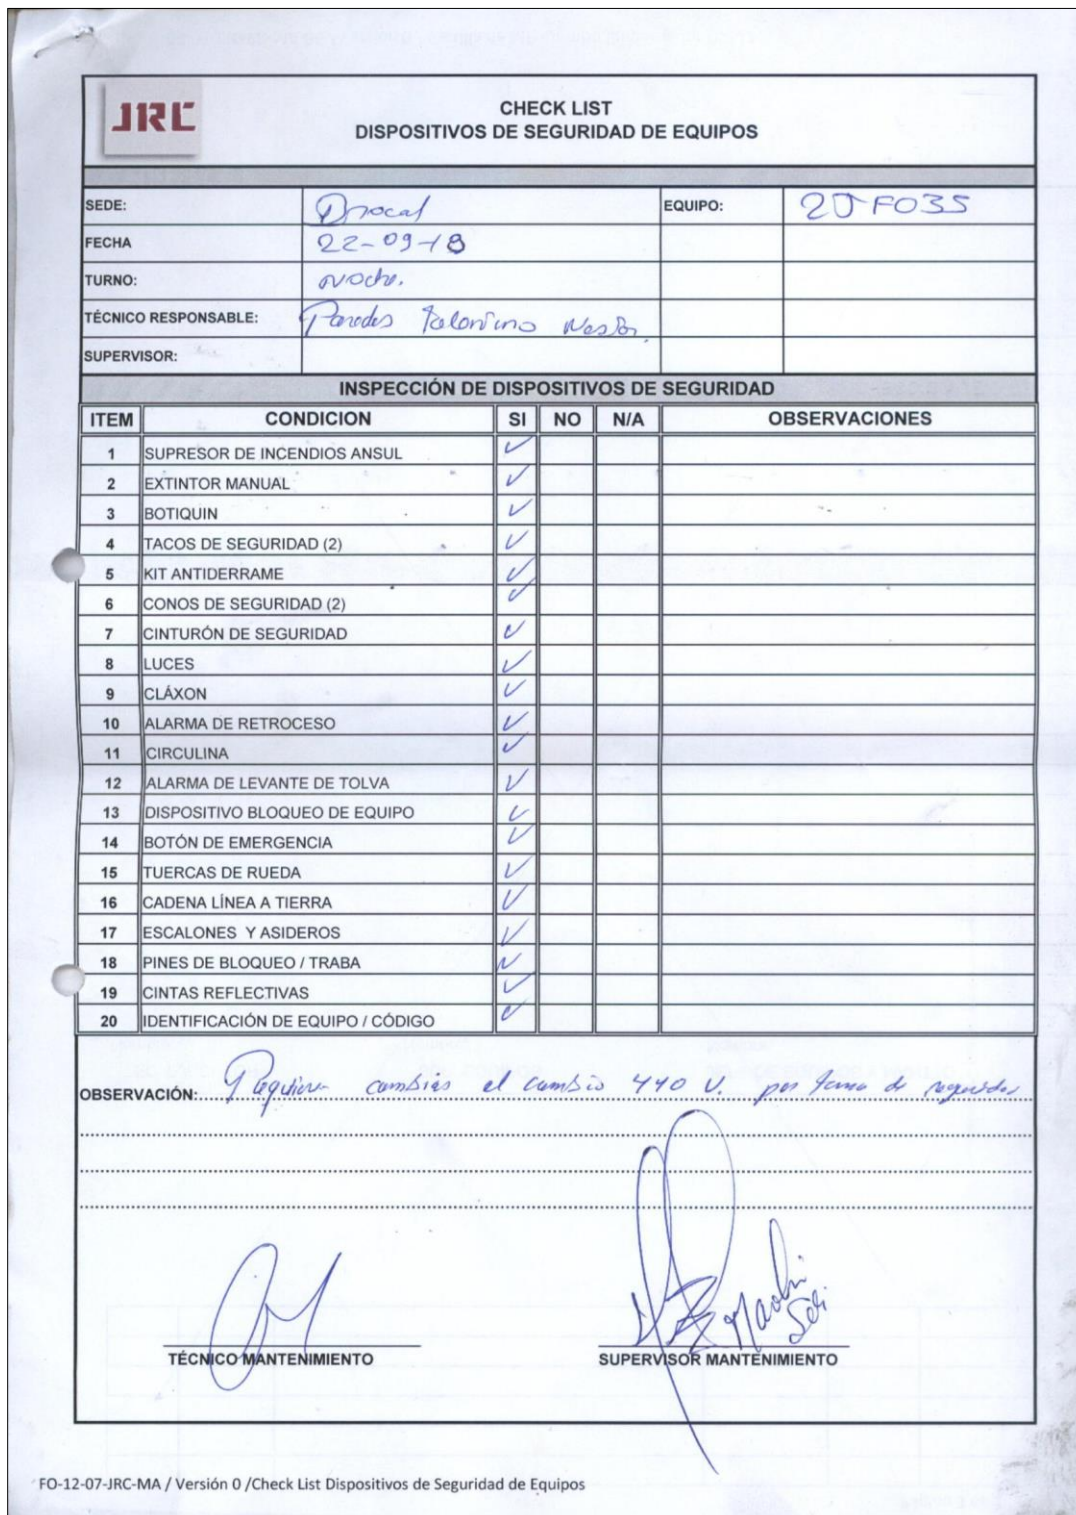 JRC
CHECK LIST
DISPOSITIVOS DE SEGURIDAD DE EQUIPOS
SEDE: EQUIPO: 20F035
FECHA 22-09-18
TURNO: Noche.
TÉCNICO RESPONSABLE: Paredes Tolentino Nestor
SUPERVISOR:
INSPECCIÓN DE DISPOSITIVOS DE SEGURIDAD
ITEM CONDICION SI NO N/A OBSERVACIONES
1 SUPRESOR DE INCENDIOS ANSUL ✓
2 EXTINTOR MANUAL ✓
3 BOTIQUIN ✓
4 TACOS DE SEGURIDAD (2) ✓
5 KIT ANTIDERRAME ✓
6 CONOS DE SEGURIDAD (2) ✓
7 CINTURÓN DE SEGURIDAD ✓
8 LUCES ✓
9 CLÁXON ✓
10 ALARMA DE RETROCESO ✓
11 CIRCULINA ✓
12 ALARMA DE LEVANTE DE TOLVA ✓
13 DISPOSITIVO BLOQUEO DE EQUIPO ✓
14 BOTÓN DE EMERGENCIA ✓
15 TUERCAS DE RUEDA ✓
16 CADENA LÍNEA A TIERRA ✓
17 ESCALONES Y ASIDEROS ✓
18 PINES DE BLOQUEO / TRABA ✓
19 CINTAS REFLECTIVAS ✓
20 IDENTIFICACIÓN DE EQUIPO / CÓDIGO ✓
OBSERVACIÓN: Requiere cambiar el 440 V. por tema de
TÉCNICO MANTENIMIENTO SUPERVISOR MANTENIMIENTO
FO-12-07-JRC-MA / Versión 0 /Check List Dispositivos de Seguridad de Equipos